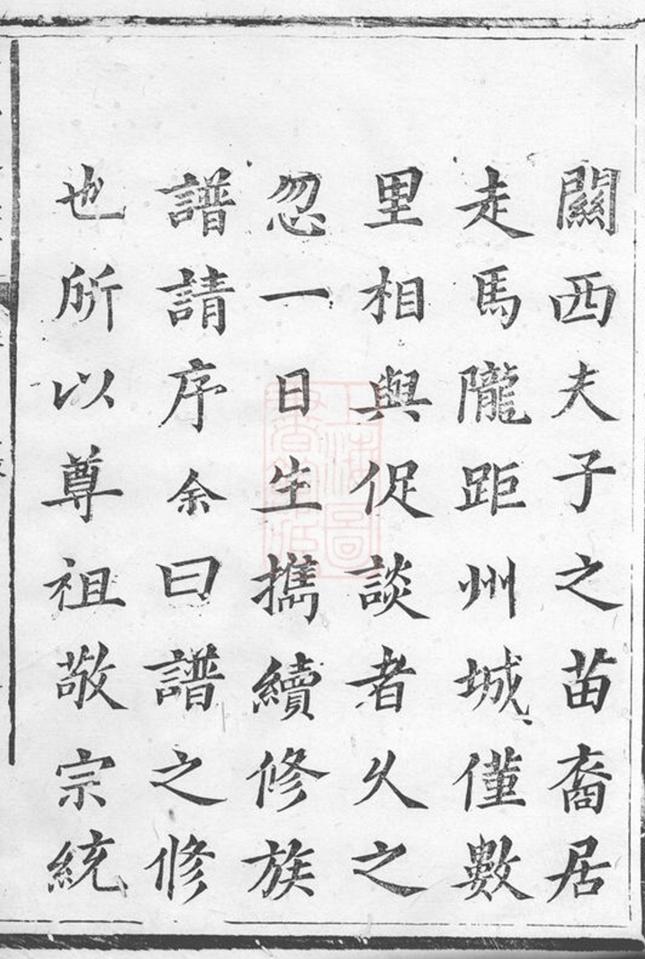 關西夫子之苗裔居
走馬隴距州城僅數
里相與促談者久之
忽一日生攜續修族
譜請序余曰譜之修
也所以尊祖敬宗統